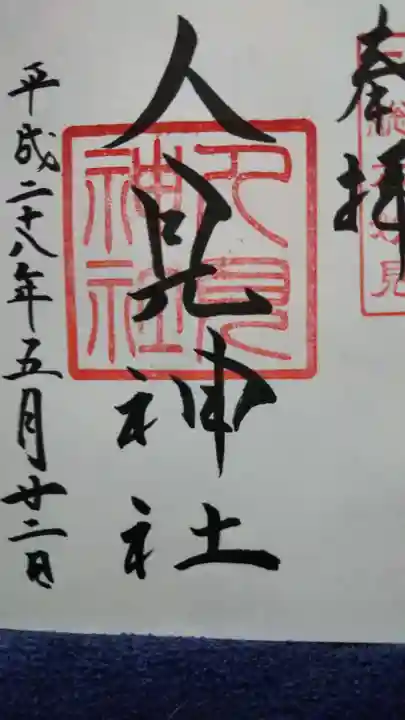 奉拝
人見神社
人見神社
平成二十八年五月廿二日